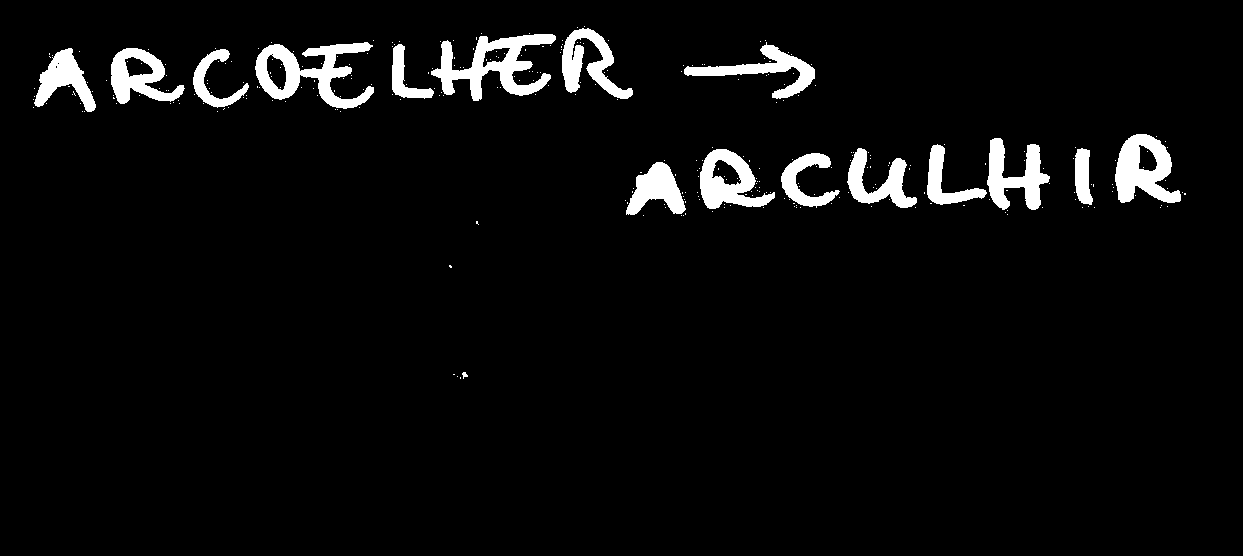 ARCOELHER →
ARCULHIR